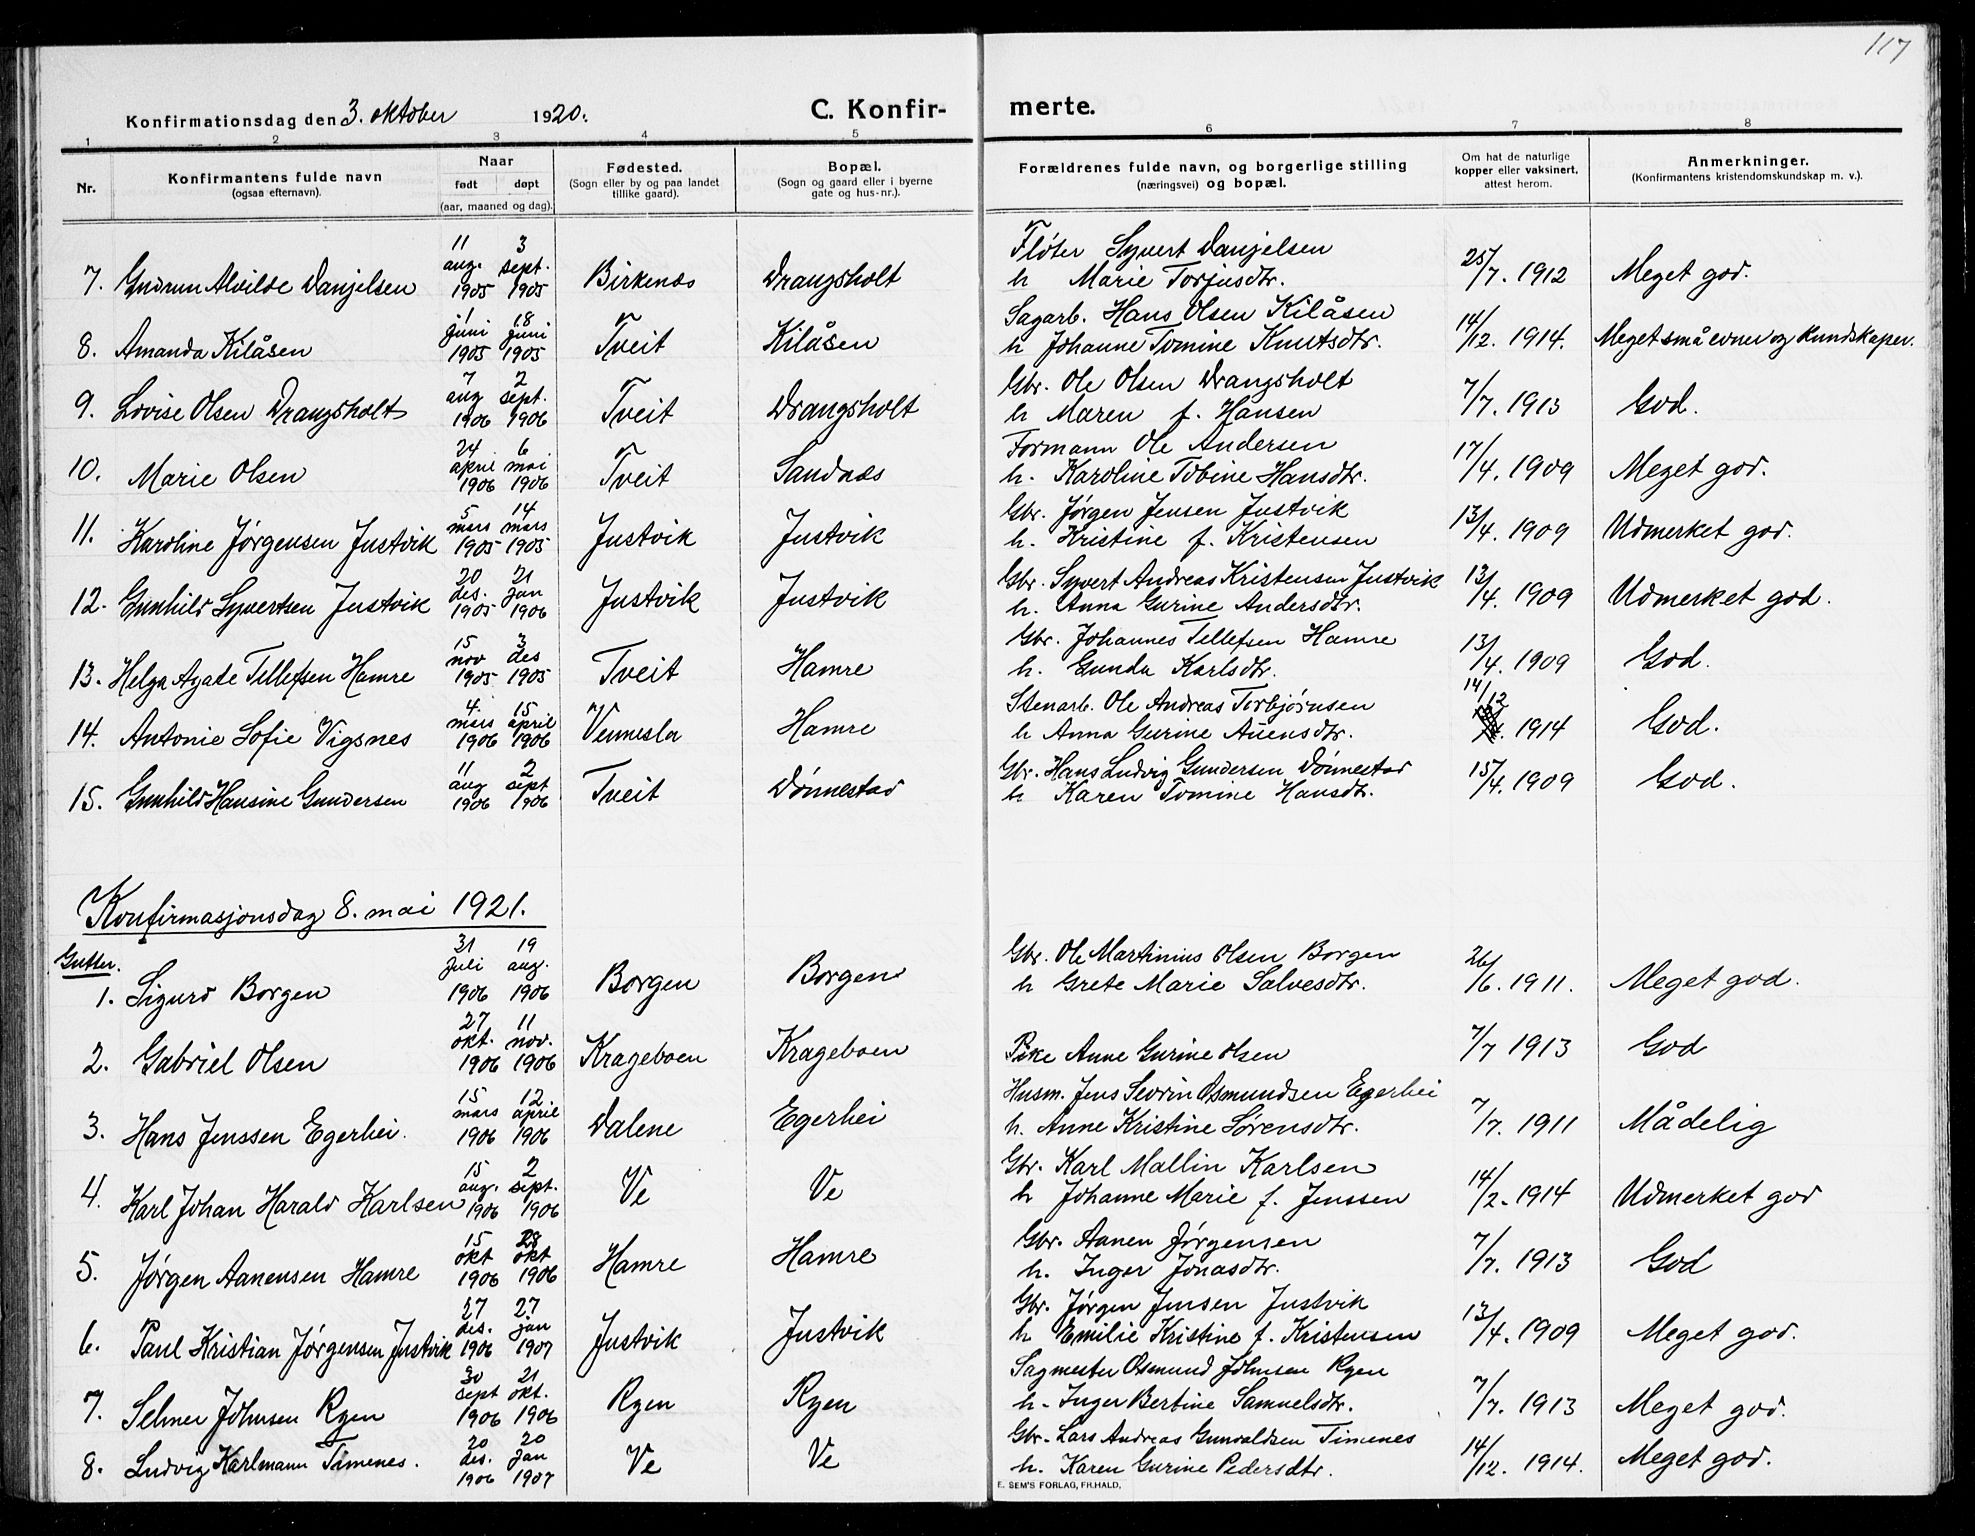 117
Konfirmationsdag den 3. oktober 1920. C. Konfir- merte.
1 2 3 4 5 6 7 8
Nr. Konfirmantens fulde navn (ogsaa efternavn). Naar født døpt (aar, maaned og dag). Fødested. (Sogn eller by og paa landet tillike gaard). Bopæl. (Sogn og gaard eller i byerne gate og hus-nr.). Forældrenes fulde navn, og borgerlige stilling (næringsvei) og bopæl. Om hat de naturlige kopper eller vaksinert, attest herom. Anmerkninger. (Konfirmantens kristendomskundskap m. v.).
7. Gudrun Alvilde Danjelsen 11 aug. 1905 3 sept. 1905 Birkenes Drangsholt Fløter Syvert Danjelsen h Marie Torjusdtr. 25/7. 1912 Meget god.
8. Amanda Kilåsen 1 juni 1905 18 juni 1905 Tveit Kilåsen Sagarb. Hans Olsen Kilåsen h Johanne Tomine Knutsdtr. 14/12. 1914. Meget små evner og kundskaper.
9. Lovise Olsen Drangsholt 7 aug 1906 2 sept. 1906 Tveit Drangsholt Gbr. Ole Olsen Drangsholt h Maren f. Hansen 7/7. 1913 God.
10. Marie Olsen 24 april 1906 6 mai 1906 Tveit Sandnes Formann Ole Andersen h. Karoline Tobine Hansdtr. 17/4. 1909 Meget god.
11. Karoline Jørgensen Justvik 5 mars 1905 14 mars 1905 Justvik Justvik Gbr. Jørgen Jensen Justvik h. Kristine f. Kristensen 13/4. 1909 Udmerket god.
12. Gunhild Syvertsen Justvik 20 des. 1905 21 jan 1906 Justvik Justvik Gbr. Syvert Andreas Kristensen Justvik h. Anna Gurine Andersdtr. 13/4. 1909 Udmerket god.
13. Helga Agate Tellefsen Hamre 15 nov 1905 3 des 1905 Tveit Hamre Gbr. Johannes Tellefsen Hamre h. Gunda Karlsdtr. 13/4. 1909 God.
14. Antonie Sofie Vigsnes 4. mars 1906 15 april 1906 Vennesla Hamre Stenarb. Ole Andreas Torbjørnsen h Anna Gurine Auensdtr. 14/12. 1914 God.
15. Gunhild Hansine Gundersen 11 aug 1906 2 sept 1906 Tveit Dønnestad Gbr. Hans Ludvig Gundersen Dønnestad h Karen Tomine Hansdtr. 15/4. 1909 God.
Konfirmasjonsdag 8. mai 1921.
Gutter.
1. Sigurd Borgen 31 juli 1906 19 aug. 1906 Borgen Borgen Gbr. Ole Martinius Olsen Borgen h Grete Marie Salvesdtr. 26/6. 1911. Meget god.
2. Gabriel Olsen 27 okt. 1906 11 nov. 1906 Krageboen Krageboen Pike Anne Gurine Olsen 7/7 1913 God
3. Hans Jenssen Egerhei. 15 mars 1906 12 april 1906 Dalene Egerhei Husm. Jens Sevrin Osmundsen Egerhei h. Anne Kristine Sørensdtr. 7/7. 1911 Mådelig
4. Karl Johan Harald Karlsen 15 aug. 1906 2 sept. 1906 Ve Ve Gbr. Karl Mallin Karlsen h Johanne Marie f. Jenssen 14/2. 1914 Udmerket god
5. Jørgen Aanensen Hamre 15 okt 1906 28 okt 1906 Hamre Hamre Gbr. Aanen Jørgensen h. Inger Jonasdtr. 7/7. 1913 God
6. Paul Kristian Jørgensen Justvik 27 des. 1906 27 jan 1907 Justvik Justvik Gbr. Jørgen Jensen Justvik h Emilie Kristine f. Kristensen 13/4. 1909 Meget god.
7. Selmer Johnsen Ryen 30 sept 1906 21 okt. 1906 Ryen Ryen Sagmester Osmund Johnsen Ryen h. Inger Bertine Samuelsdtr. 7/7. 1913 Meget god.
8. Ludvig Karlmann Timenes. 20 des. 1906 20 jan 1907 Ve Ve Gbr. Lars Andreas Gunvaldsen Timenes h. Karen Gurine Pedersdtr. 14/12. 1914. Meget god.
E. SEM'S FORLAG, FR.HALD.